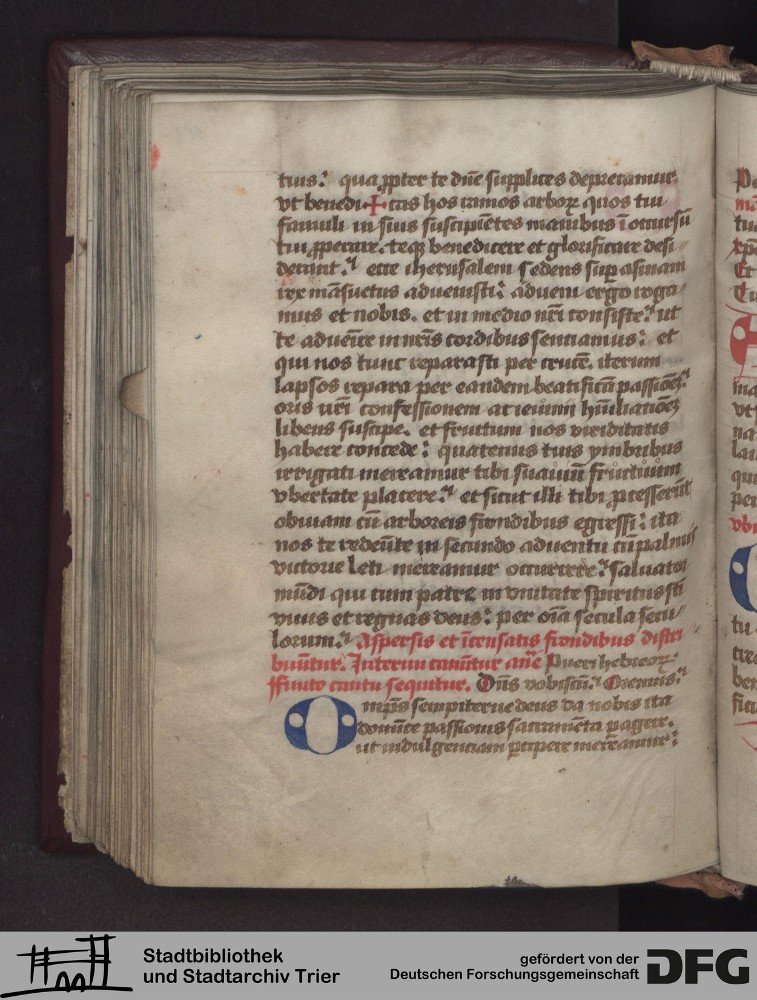 tuus: qua ꝓpter te dn̄e supplices deprecamur.
vt benedi ✝ cas hos ramos arboꝝ quos tui
famuli in suis suscipiētes manibus ī occursū
tui ꝓperare. teqꝫ benedicere et glorificare desi
derant. ecce iherusalem sedens suꝑ asinam
rex māsuetus aduenisti: adueni ergo roga
mus et nobis. et in medio nr̄i consiste: ut
te aduēire in nr̄is cordibus sentiamus: et
qui nos tunc reparasti per crucē. iterum
lapsos repara per eandem beatificā passionē.
oris nr̄i confessionem ac ieiunii hūiliationē
libens suscipe. et fructum nos viriditatis
habere concede: quatenus tuis ymbribus
irrigati mereamur tibi suauiū fructuum
vbertate placere: et sicut illi tibi ꝓcesserūt
obuiam cū arboreis frondibus egressi: ita
nos te redeūte in secundo aduentu cū palmis
victorie leti mereamur occurrere: saluator
mūdi qui cum patre in vnitate spiritus sti
viuis et regnas deus: per oīa secula secu
lorum. Aspersis et īcensatis frondibus distri
buūtur. Interim canūtur an̄e Pueri hebreoꝝ:
ffinito cantu sequitur. Dn̄s vobiscū. Oremus.
Omp̄s sempiterne deus da nobis ita
domīce passionis sacramēta pagere.
ut indulgenciam ꝑcipere mereamur:
Stadtbibliothek
und Stadtarchiv Trier
gefördert von der
Deutschen Forschungsgemeinschaft
DFG